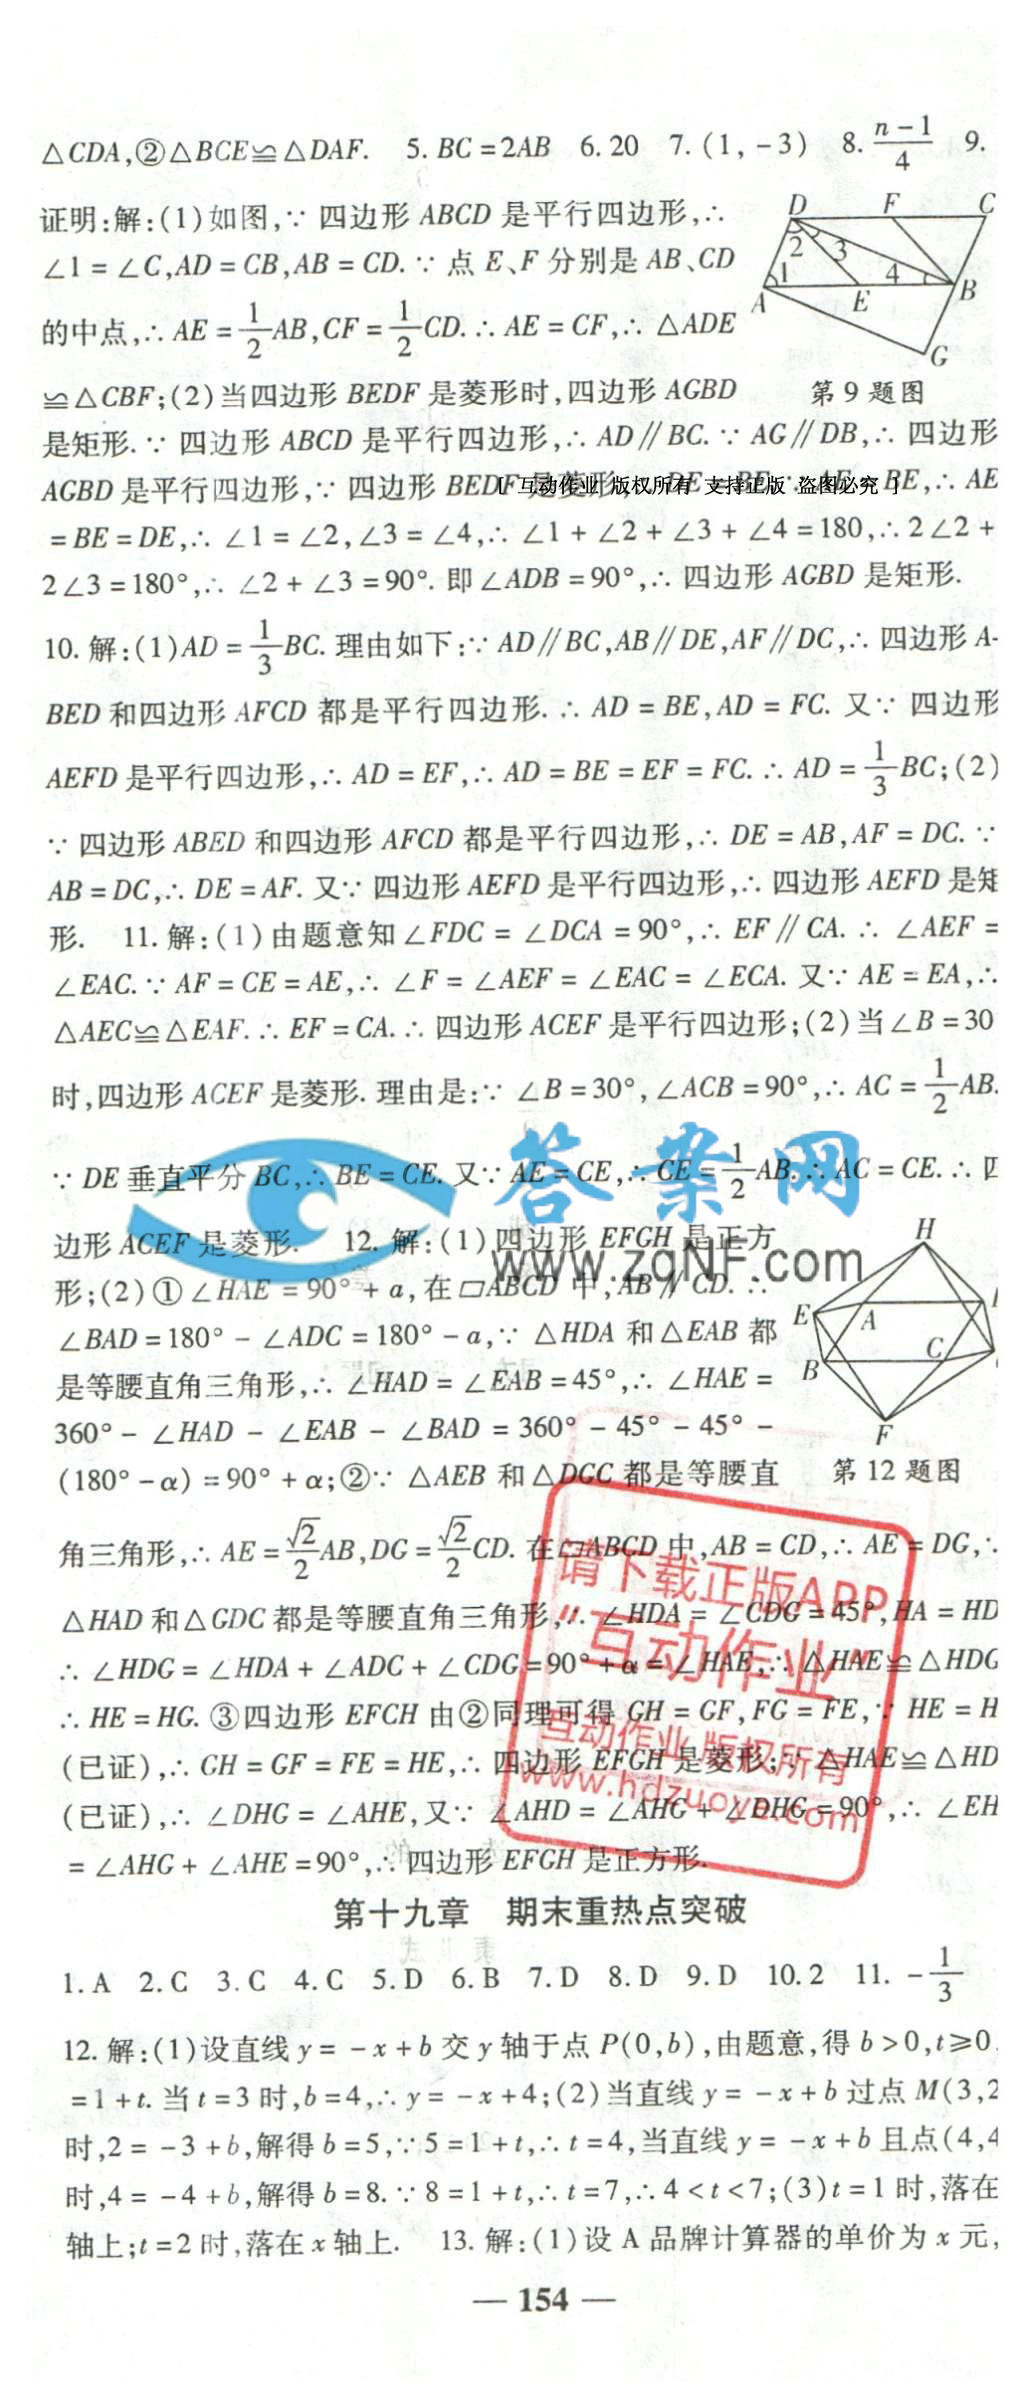 △CDA,②△BCE≌△DAF. 5. BC=2AB 6. 20 7. (1,-3) 8. (n-1)/4 9.
证明:解:(1)如图,∵四边形ABCD是平行四边形,∴
∠1=∠C,AD=CB,AB=CD.∵点E、F分别是AB、CD
的中点,∴AE=1/2AB,CF=1/2CD.∴AE=CF,∴△ADE
≌△CBF;(2)当四边形BEDF是菱形时,四边形AGBD
D F C 2 3 1 4 A E B G
第9题图
是矩形.∵四边形ABCD是平行四边形,∴AD∥BC.∵AG∥DB,∴四边形
AGBD是平行四边形,∵四边形BEDF是菱形,∴DE=BE∵AE=BE,∴AE
[互动作业 版权所有 支持正版 盗图必究]
=BE=DE,∴∠1=∠2,∠3=∠4,∴∠1+∠2+∠3+∠4=180,∴2∠2+
2∠3=180°,∴∠2+∠3=90°.即∠ADB=90°,∴四边形AGBD是矩形.
10.解:(1)AD=1/3BC.理由如下:∵AD∥BC,AB∥DE,AF∥DC,∴四边形A-
BED和四边形AFCD都是平行四边形.∴AD=BE,AD=FC.又∵四边形
AEFD是平行四边形,∴AD=EF,∴AD=BE=EF=FC.∴AD=1/3BC;(2)
∵四边形ABED和四边形AFCD都是平行四边形,∴DE=AB,AF=DC.∵
AB=DC,∴DE=AF.又∵四边形AEFD是平行四边形,∴四边形AEFD是矩
形. 11.解:(1)由题意知∠FDC=∠DCA=90°,∴EF∥CA.∴∠AEF=
∠EAC.∵AF=CE=AE,∴∠F=∠AEF=∠EAC=∠ECA.又∵AE=EA,∴
△AEC≌△EAF.∴EF=CA.∴四边形ACEF是平行四边形;(2)当∠B=30
时,四边形ACEF是菱形.理由是:∵∠B=30°,∠ACB=90°,∴AC=1/2AB.
∵DE垂直平分BC,∴BE=CE.又∵AE=CE,∴CE=1/2AB.∴AC=CE.∴四
答案网
www.zqNF.com
边形ACEF是菱形. 12.解:(1)四边形EFGH是正方
形;(2)①∠HAE=90°+a,在▱ABCD中,AB∥CD.∴
∠BAD=180°-∠ADC=180°-a,∵△HDA和△EAB都
是等腰直角三角形,∴∠HAD=∠EAB=45°,∴∠HAE=
360°-∠HAD-∠EAB-∠BAD=360°-45°-45°-
(180°-α)=90°+α;②∵△AEB和△DGC都是等腰直
H E A B C F
第12题图
角三角形,∴AE=√2/2AB,DG=√2/2CD.在▱ABCD中,AB=CD,∴AE=DG,∵
△HAD和△GDC都是等腰直角三角形,∴∠HDA=∠CDG=45°,HA=HD
∴∠HDG=∠HDA+∠ADC+∠CDG=90°+α=∠HAE,∴△HAE≌△HDG
∴HE=HG.③四边形EFCH由②同理可得GH=GF,FG=FE,∵HE=H
(已证),∴GH=GF=FE=HE,∴四边形EFGH是菱形;∵△HAE≌△HD
(已证),∴∠DHG=∠AHE,又∵∠AHD=∠AHG+∠DHG=90°,∴∠EH
=∠AHG+∠AHE=90°,∴四边形EFGH是正方形.
请下载正版APP
"互动作业"
互动作业 版权所有
www.hdzuoye.com
第十九章 期末重热点突破
1. A 2. C 3. C 4. C 5. D 6. B 7. D 8. D 9. D 10. 2 11. -1/3
12.解:(1)设直线y=-x+b交y轴于点P(0,b),由题意,得b>0,t≥0,
=1+t.当t=3时,b=4,∴y=-x+4;(2)当直线y=-x+b过点M(3,2
时,2=-3+b,解得b=5,∵5=1+t,∴t=4,当直线y=-x+b且点(4,4
时,4=-4+b,解得b=8.∵8=1+t,∴t=7,∴4<t<7;(3)t=1时,落在
轴上;t=2时,落在x轴上. 13.解:(1)设A品牌计算器的单价为x元,
— 154 —